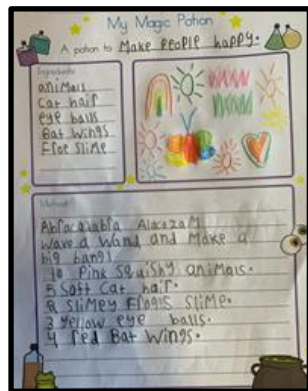 My Magic Potion
A potion to Make PEoPlE haPPy.
Ingredients
aniMals
Cat hair
eye balls
Bat Wings
Frog Slime
Method
Abracadabra Alacazam
Wave a Wand and Make a
big bang!
10 Pink Squishy animals.
5 Soft Cat hair.
8 Slimey Frogs Slime.
3 yellow eye balls.
4 red Bat Wings.